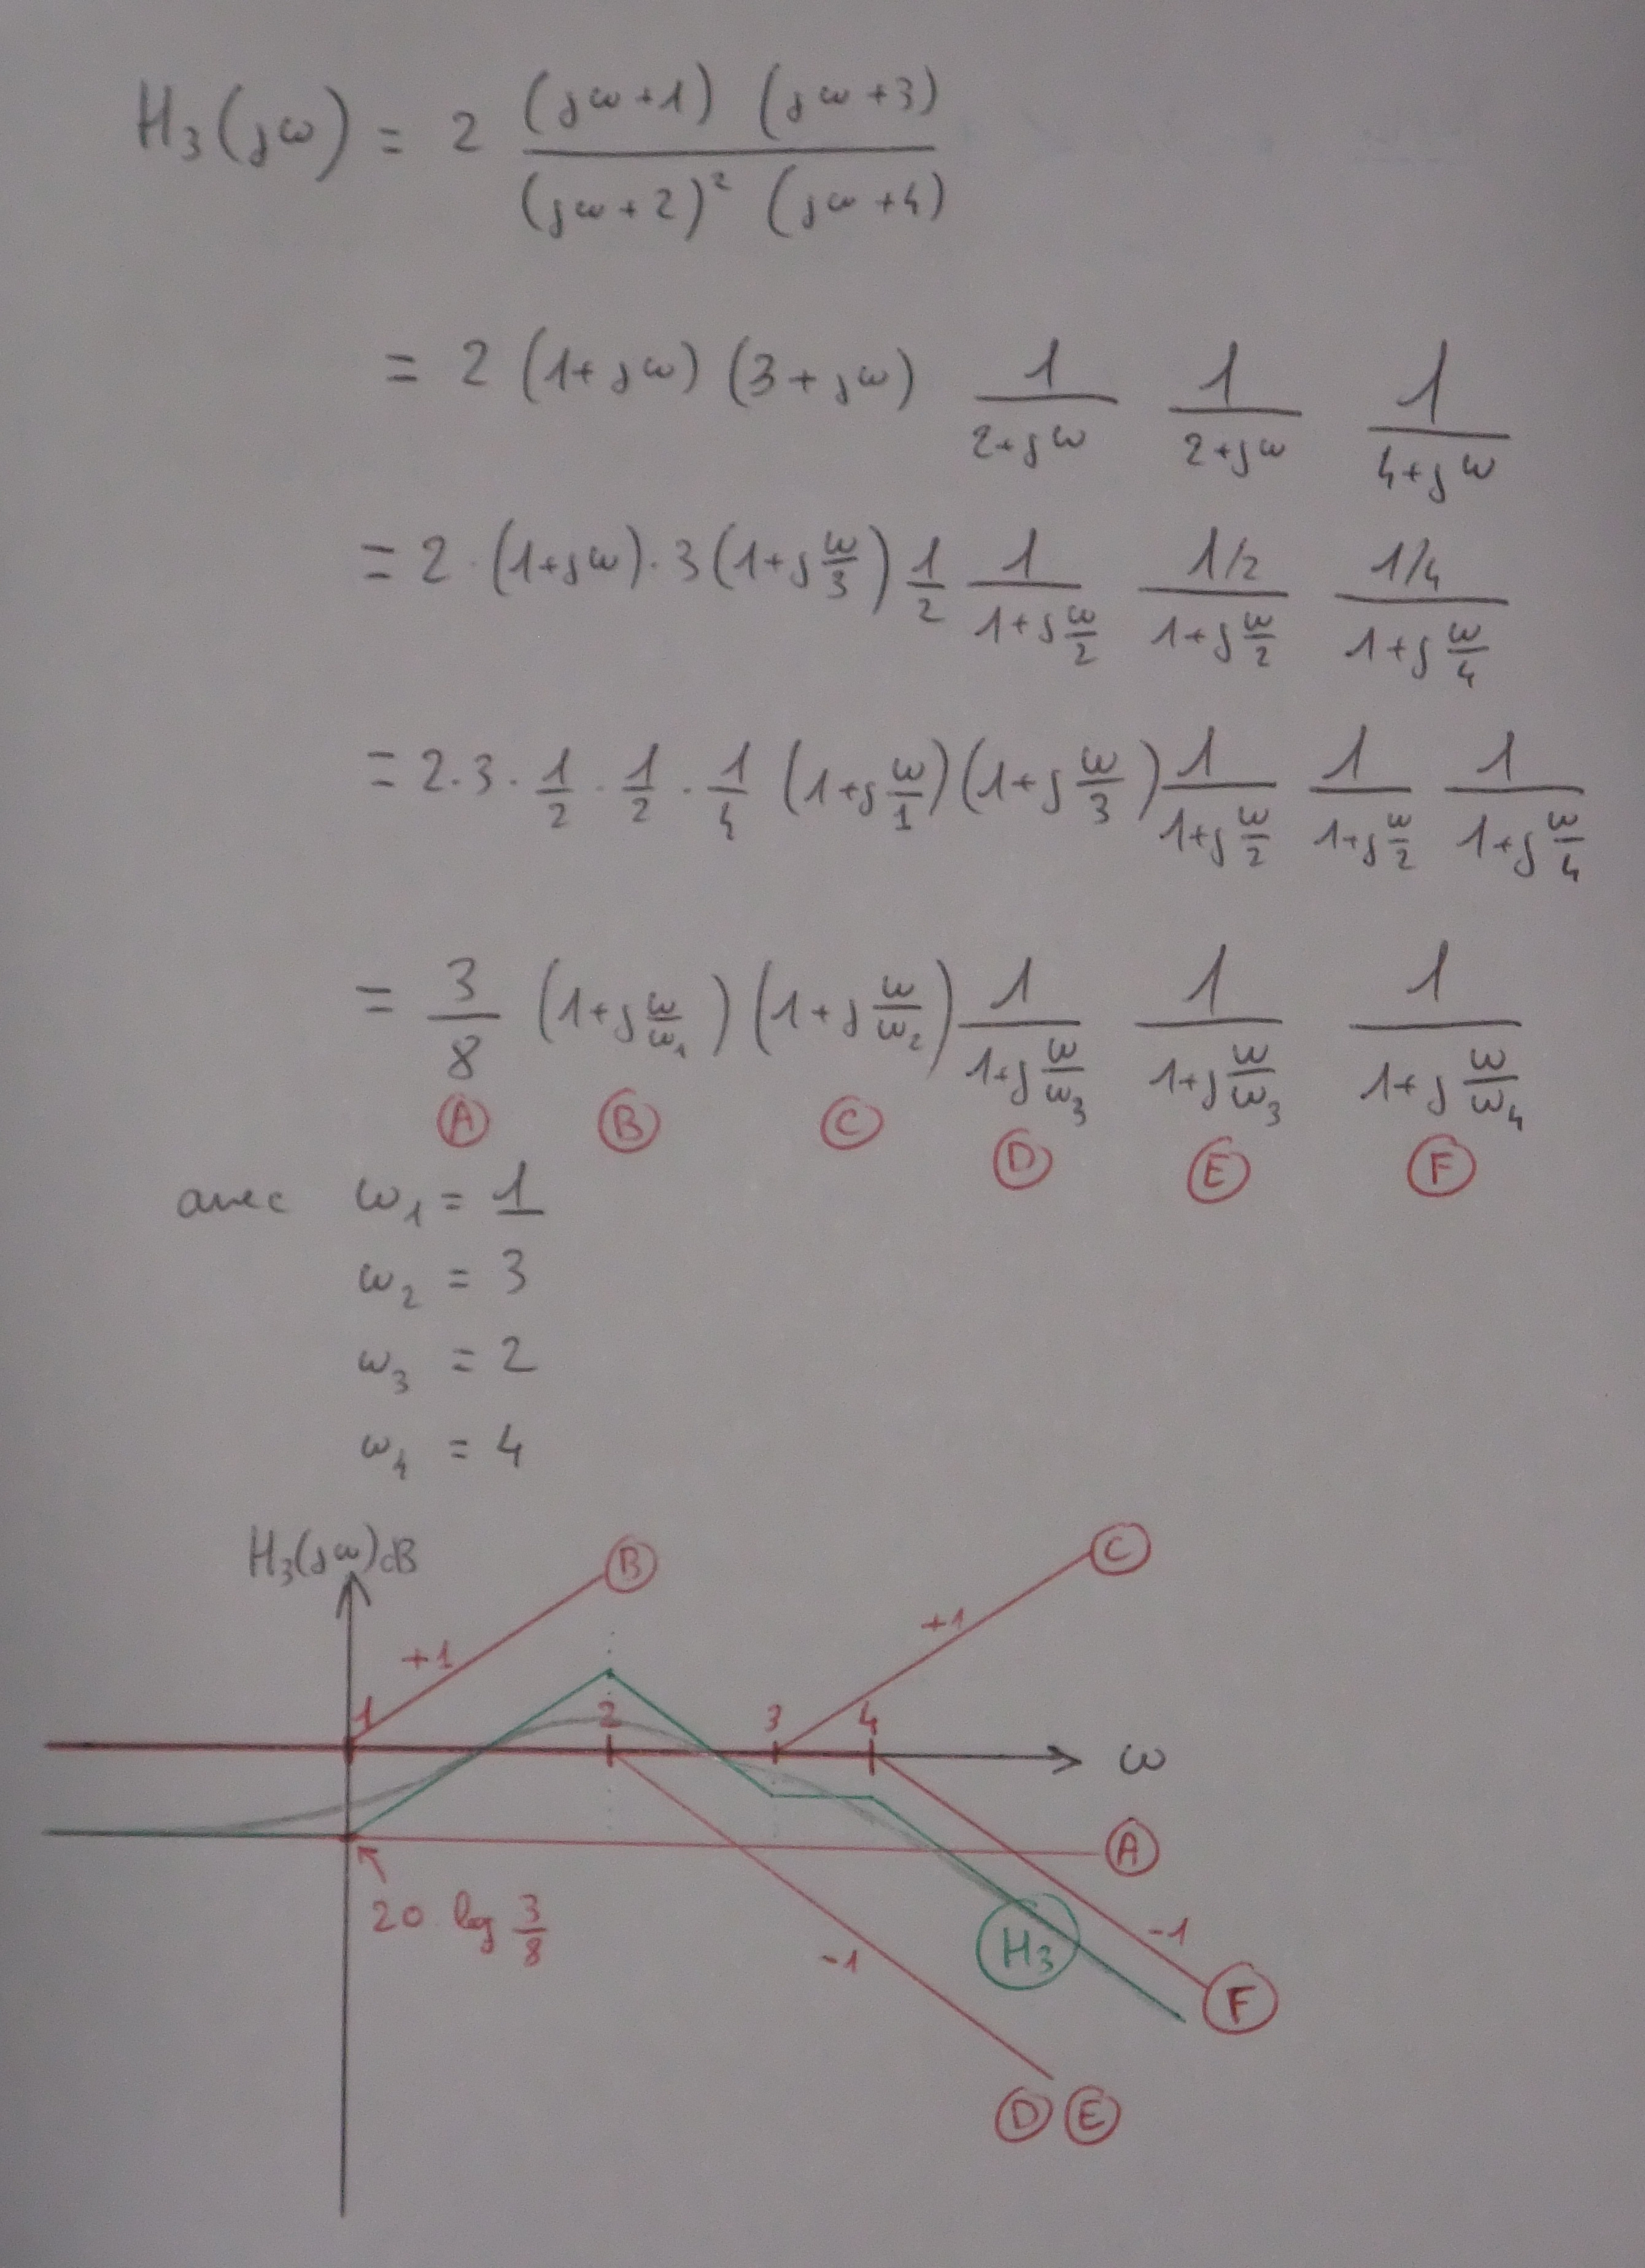 H₃(jω) = 2 (jω+1) (jω+3) / (jω+2)² (jω+4)
= 2 (1+jω) (3+jω) 1/(2+jω) 1/(2+jω) 1/(4+jω)
= 2 · (1+jω) · 3 (1+j ω/3) 1/2 1/(1+j ω/2) (1/2)/(1+j ω/2) (1/4)/(1+j ω/4)
= 2 · 3 · 1/2 · 1/2 · 1/4 (1+j ω/1) (1+j ω/3) 1/(1+j ω/2) 1/(1+j ω/2) 1/(1+j ω/4)
= 3/8 (1+j ω/ω₁) (1+j ω/ω₂) 1/(1+j ω/ω₃) 1/(1+j ω/ω₃) 1/(1+j ω/ω₄)
A B C D E F
avec ω₁ = 1
ω₂ = 3
ω₃ = 2
ω₄ = 4
H₃(jω)dB
B
C
+1
+1
1 2 3 4
ω
A
20 log 3/8
H₃
-1
-1
F
D E